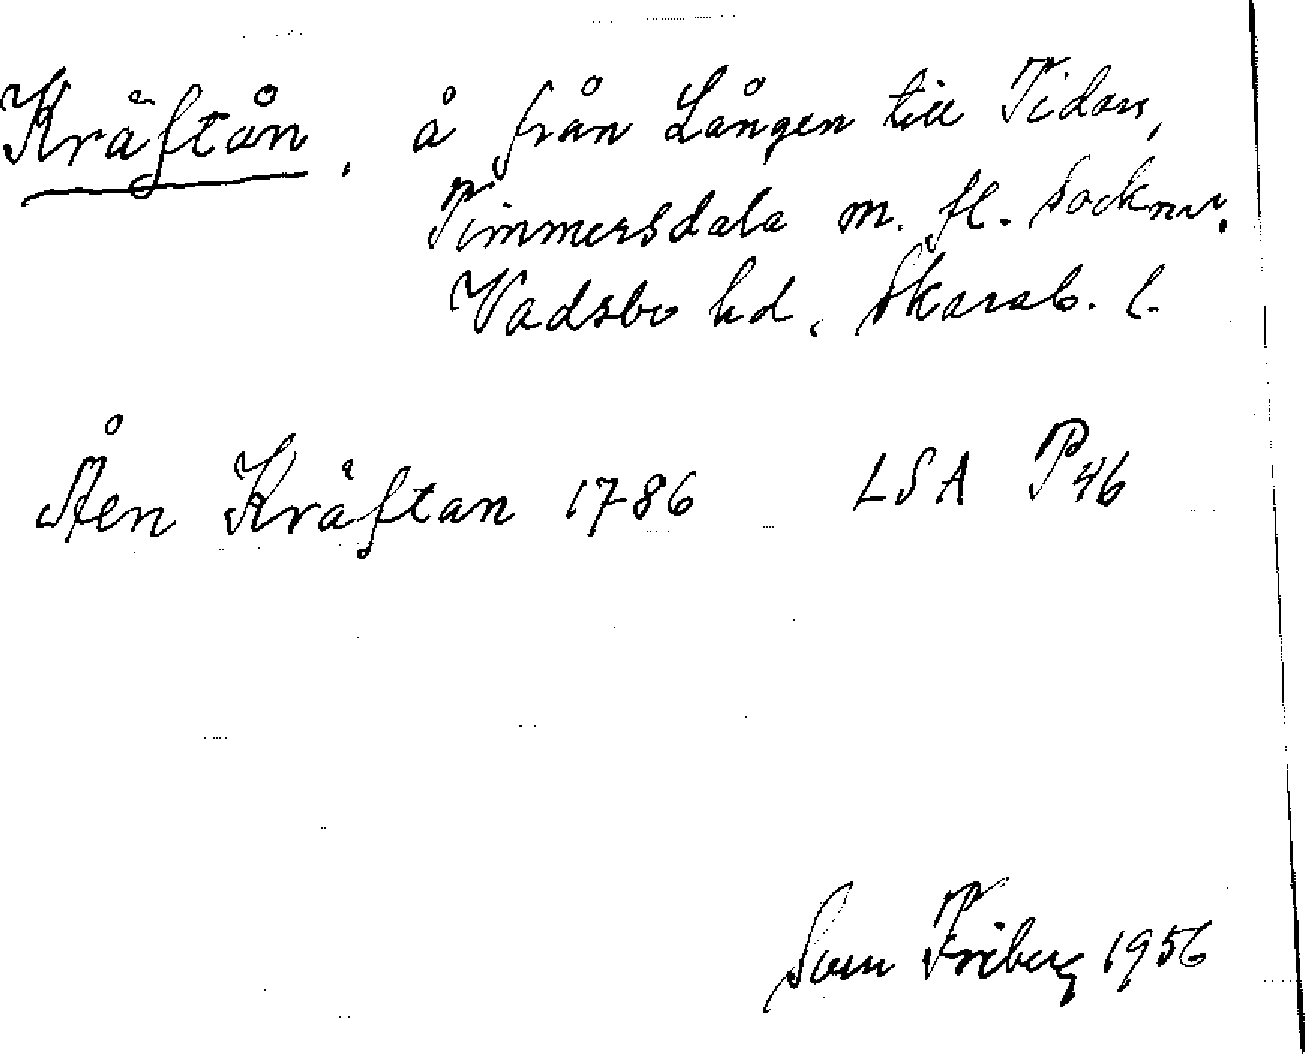 Kräftån, å från Lången till Tidan,
Timmersdala m. fl. socknar.
Vadsbo hd, Skarab. l.
Åen Kräftan 1786 LSA P46
Sven Friberg 1956